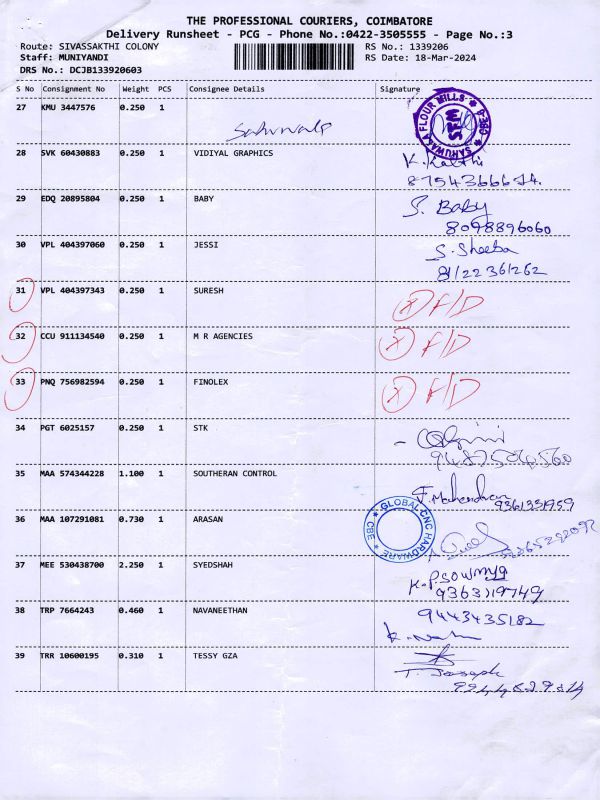 THE PROFESSIONAL COURIERS, COIMBATORE
Delivery Runsheet - PCG - Phone No.:0422-3505555 - Page No.:3
Route: SIVASSAKTHI COLONY RS No.: 1339206
Staff: MUNIYANDI RS Date: 18-Mar-2024
DRS No.: DCJB133920603
S No Consignment No Weight PCS Consignee Details Signature
27 KMU 3447576 0.250 1
SAHUWALA FLOUR MILLS * CBE-9 * SFM
28 SVK 60430883 0.250 1 VIDIYAL GRAPHICS K. Kalthi
8754366674.
29 EDQ 20895804 0.250 1 BABY S. Baby
8098896060
30 VPL 404397060 0.250 1 JESSI S. Sheeba
8122361262
31 VPL 404397343 0.250 1 SURESH X F/D
32 CCU 911134540 0.250 1 M R AGENCIES X F/D
33 PNQ 756982594 0.250 1 FINOLEX X F/D
34 PGT 6025157 0.250 1 STK
35 MAA 574344228 1.100 1 SOUTHERAN CONTROL F. Mahendran
9361331959
36 MAA 107291081 0.730 1 ARASAN GLOBAL CNC HARDWARE * CBE *
37 MEE 530438700 2.250 1 SYEDSHAH K.P. Sowmya
9363119749
38 TRP 7664243 0.460 1 NAVANEETHAN 9443435182
39 TRR 10600195 0.310 1 TESSY GZA
T. Joseph